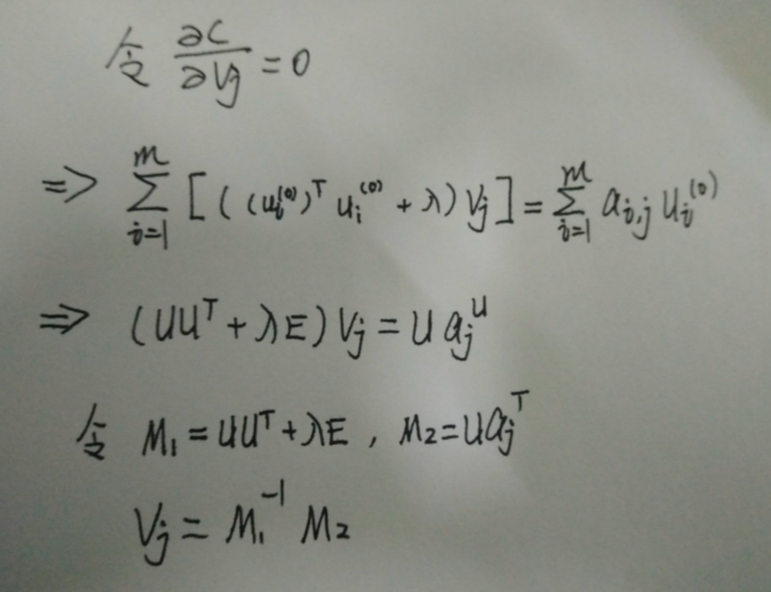 令 ∂C/∂Vj = 0
=> ∑_{i=1}^{m} [((u_i^{(0)})^T u_i^{(0)} + λ) V_j] = ∑_{i=1}^{m} a_{i,j} u_i^{(0)}
=> (UU^T + λE) V_j = U a_j^U
令 M_1 = UU^T + λE , M_2 = U a_j^T
V_j = M_1^{-1} M_2